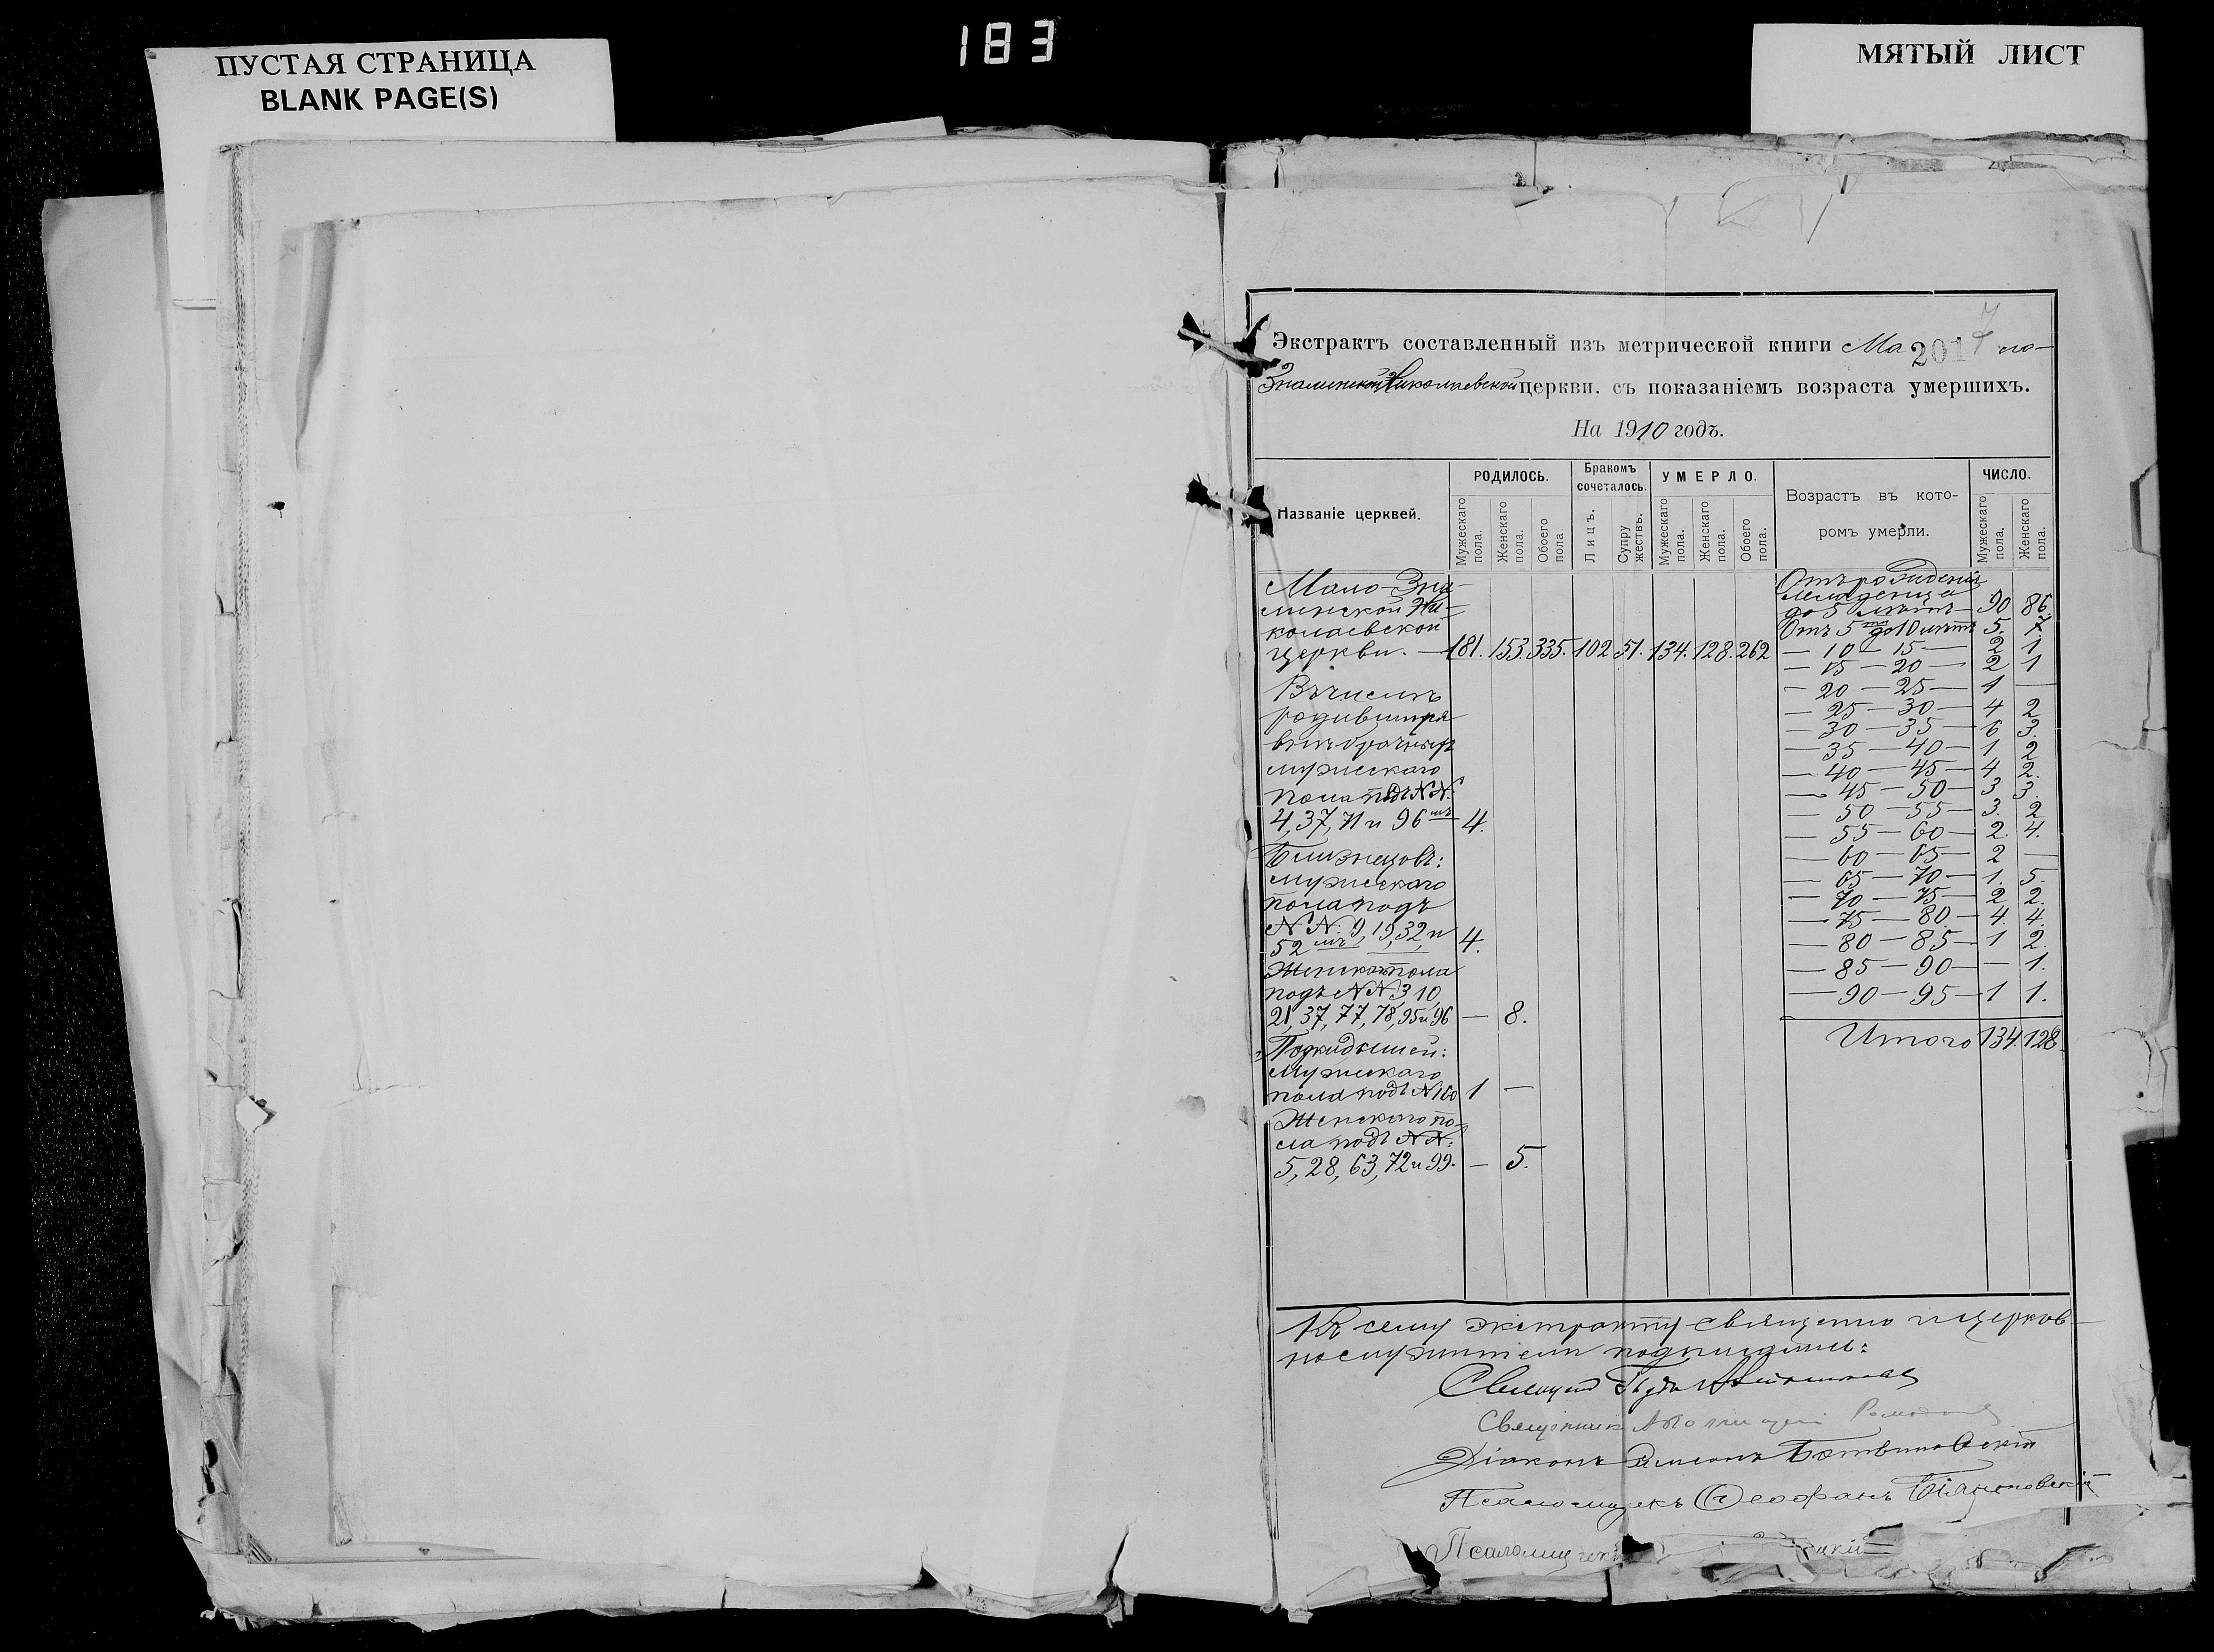 183
ПУСТАЯ СТРАНИЦА
BLANK PAGE(S)
МЯТЫЙ ЛИСТ
Экстрактъ составленный изъ метрической книги Мало-
2017
Знаменской Николаевской церкви. съ показаніемъ возраста умершихъ.
На 1910 годъ.
Названіе церквей.
РОДИЛОСЬ.
Мужескаго пола.
Женскаго пола.
Обоего пола
Бракомъ сочеталось.
Лицъ.
Супружествъ.
УМЕРЛО.
Мужескаго пола.
Женскаго пола.
Обоего пола.
Возрастъ въ которомъ умерли.
ЧИСЛО.
Мужескаго пола.
Женскаго пола.
Мало-Зна-
менской Ни-
колаевской
церкви. — 181. 153. 335. 102 51. 134. 128. 262
Въ числѣ
родившихся
внѣбрачныхъ
мужескаго
пола подъ №№:
4, 37, 71 и 96 мъ 4.
Близнецовъ:
мужескаго
пола подъ
№№: 9, 19, 32 и
52 мъ 4.
Женскаго пола
подъ №№ 3, 10,
21, 37, 77, 78, 95 и 96 — 8.
Подкидышей:
Мужескаго
пола подъ № 160 1 —
Женскаго по-
ла подъ №№:
5, 28, 63, 72 и 99. — 5.
Отъ рожденія
младенца
до 5 лѣтъ — 90 86.
Отъ 5 ти до 10 лѣтъ 5. 7
— 10 — 15 — 2 1
— 15 — 20 — 2 1
— 20 — 25 — 1 —
— 25 — 30 — 4 2
— 30 — 35 — 6 3.
— 35 — 40 — 1 2
— 40 — 45 — 4 2.
— 45 — 50 — 3 3.
— 50 — 55 — 3. 2
— 55 — 60 — 2. 4.
— 60 — 65 — 2 —
— 65 — 70 — 1. 5.
— 70 — 75 — 2 2.
— 75 — 80 — 4. 4.
— 80 — 85 — 1 2.
— 85 — 90 — — 1.
— 90 — 95 — 1 1.
Итого 134. 128.
Къ сему экстракту священно и церков-
нослужители подписались:
Священ
Священник
Діаконъ Симеонъ Ботвиновскій
Псаломщикъ Ѳеофанъ
Псаломщикъ